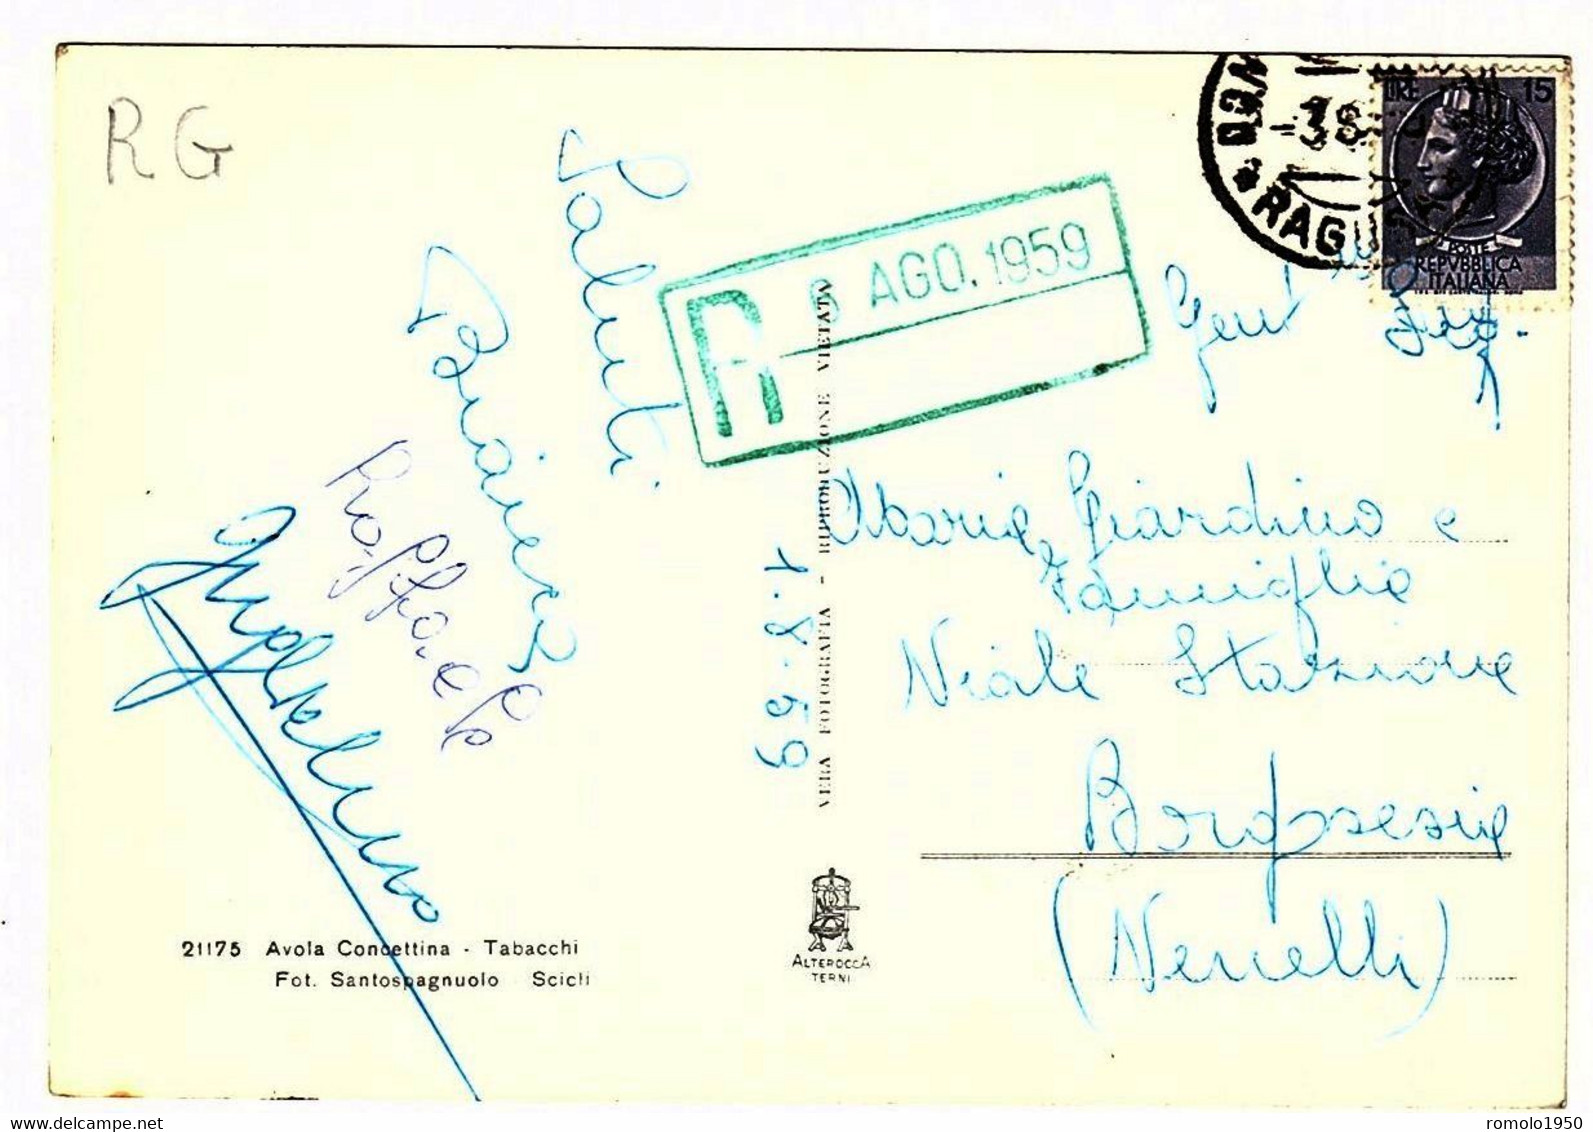 RG
Saluti
Raffaele
1.8.59
21175 Avola Concettina - Tabacchi
Fot. Santospagnuolo - Scicli
VERA FOTOGRAFIA - RIPRODUZIONE VIETATA
ALTEROCCA
TERNI
R 6 AGO. 1959
-3 8
RAG
LIRE 15
POSTE
REPVBBLICA
ITALIANA
Gent Sig.
Maria Giardino e
Famiglia
Viale Stazione
Borgosesia
(Vercelli)
www.delcampe.net
romolo1950